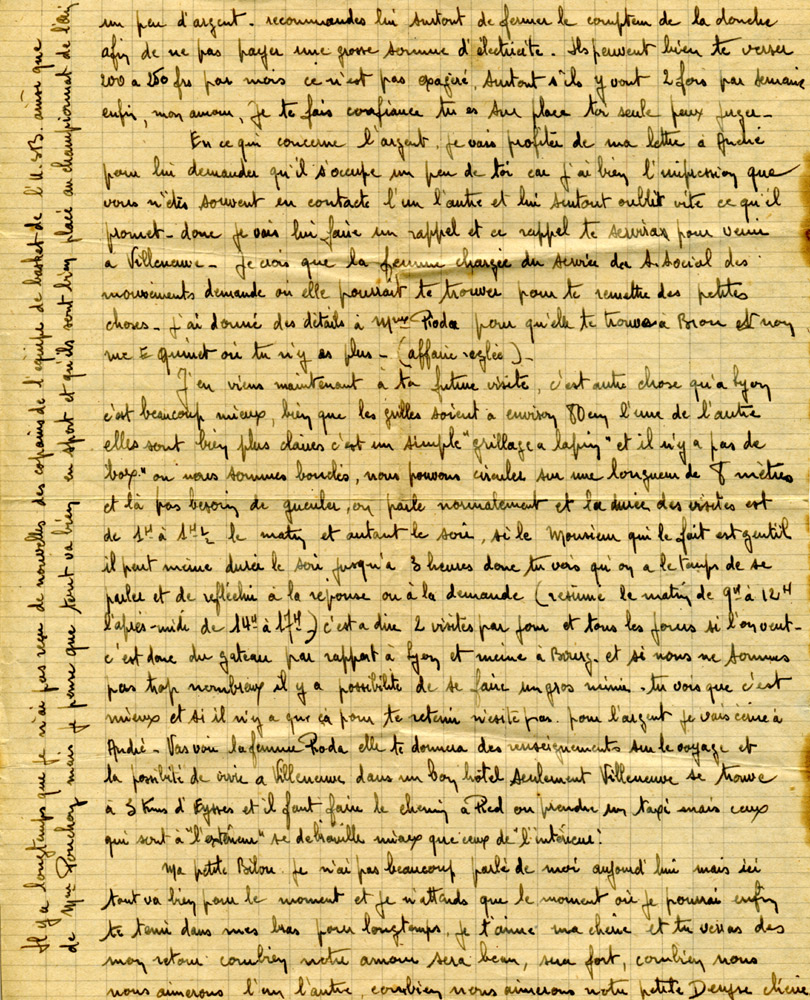 un peu d'argent. recommandes lui surtout de fermer le compteur de la douche
afin de ne pas payer une grosse somme d'électricité. Ils peuvent bien te verser
200 a 250 frs par mois ce n'est pas exagéré, surtout s'ils y vont 2 fois par semaine
enfin, mon amour, je te fais confiance tu es sur place toi seule peux juger -
En ce qui concerne l'argent, je vais profiter de ma lettre à André
pour lui demander qu'il s'occupe un peu de toi car j'ai bien l'impression que
vous n'êtes souvent en contacte l'un l'autre et lui surtout oublit vite ce qu'il
promet - donc je vais lui faire un rappel et ce rappel te servira pour venir
a Villeneuve - Je crois que la femme chargée du service du S. social des
mouvements demande où elle pourrait te trouver pour te remettre des petites
choses - J'ai donné des détails à Mme Roda pour qu'elle te trouve à Bron et non
rue E Quinet où tu n'y es plus - (affaire reglée) -
J'en viens maintenant à ta future visite, c'est autre chose qu'a Lyon
c'est beaucoup mieux, bien que les grilles soient a environ 80 cm l'une de l'autre
elles sont bien plus claires c'est un simple "grillage a lapin" et il n'y a pas de
box" ou nous sommes bouclés, nous pouvons circuler sur une longueur de 8 mètres
et là pas besoin de gueuler, on parle normalement et la durée des visites est
de 1H à 1H½ le matin et autant le soir, si le Monsieur qui le fait est gentil
il peut meine durée le soir jusqu'a 3 heures donc tu vois qu'on a le temps de se
parler et de reflechir à la réponse ou à la demande (résumé le matin de 9H à 12H
l'après-midi de 14H à 17H) c'est a dire 2 visites par jour et tous les jours si l'on veut -
c'est donc du gateau par rapport à Lyon et meine à Bourg. et si nous ne sommes
pas trop nombreux il y a possibilité de se faire un gros mimi. tu vois que c'est
mieux et si il n'y a que ça pour te retenir n'esite pas. pour l'argent je vais écrire à
André - Vas voir la femme Roda elle te donnera des renseignements sur le voyage et
la possibilité de vivre a Villeneuve dans un bon hôtel seulement Villeneuve se trouve
à 3 kms d'Eysses et il faut faire le chemin à Pied ou prendre un taxi mais ceux
qui sont à "l'extérieur" se debrouille mieux que ceux de "l'intérieur!
Ma petite Bilou. Je n'ai pas beaucoup parlé de moi aujourd'hui mais ici
tout va bien pour le moment et je n'attends que le moment où je pourrai enfin
te tenir dans mes bras pour longtemps, je t'aime ma chérie et tu verras des
mon retour combien notre amour sera beau, sera fort, combien nous
nous aimerons l'un l'autre, combien nous aimerons notre petite Denyse chérie
Il y a longtemps que je n'ai pas reçu de nouvelles des copains de l'équipe de basket de l'U.S.B. ainsi que
de Mme Ponchon mais je pense que tout va bien en sport et qu'ils sont bien placé au championnat de l'Ain